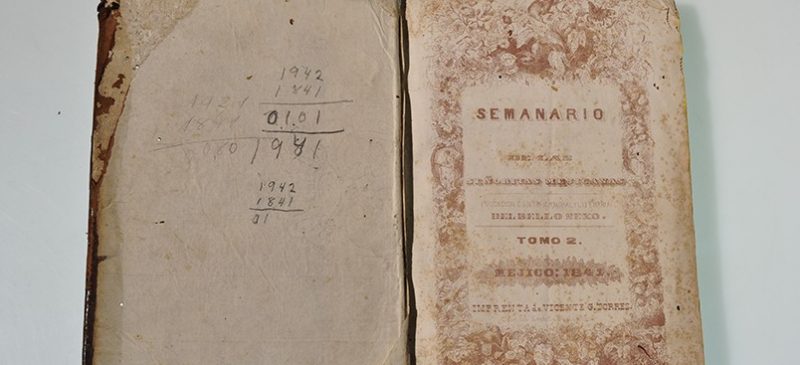 1942
1841
0101
1981
1921
1841
0080
1942
1841
01
SEMANARIO
DE LAS
SEÑORITAS MEJICANAS
DEL BELLO SEXO.
TOMO 2.
MEJICO: 1841
IMPRENTA de VICENTE G. TORRES.